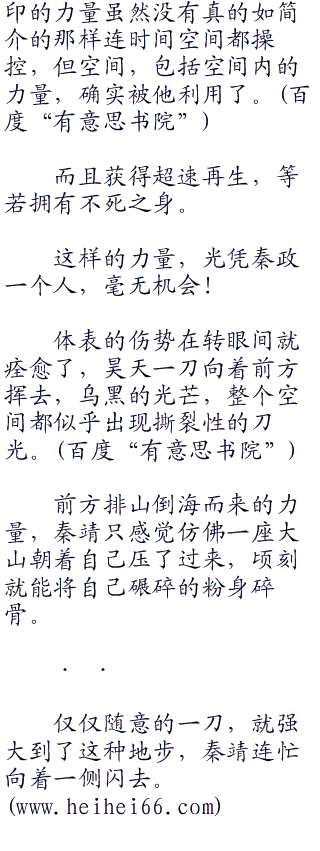 印的力量虽然没有真的如简
介的那样连时间空间都操
控，但空间，包括空间内的
力量，确实被他利用了。(百
度“有意思书院”)
而且获得超速再生，等
若拥有不死之身。
这样的力量，光凭秦政
一个人，毫无机会！
体表的伤势在转眼间就
痊愈了，昊天一刀向着前方
挥去，乌黑的光芒，整个空
间都似乎出现撕裂性的刀
光。(百度“有意思书院”)
前方排山倒海而来的力
量，秦靖只感觉仿佛一座大
山朝着自己压了过来，顷刻
就能将自己碾碎的粉身碎
骨。
. .
仅仅随意的一刀，就强
大到了这种地步，秦靖连忙
向着一侧闪去。
(www.heihei66.com)